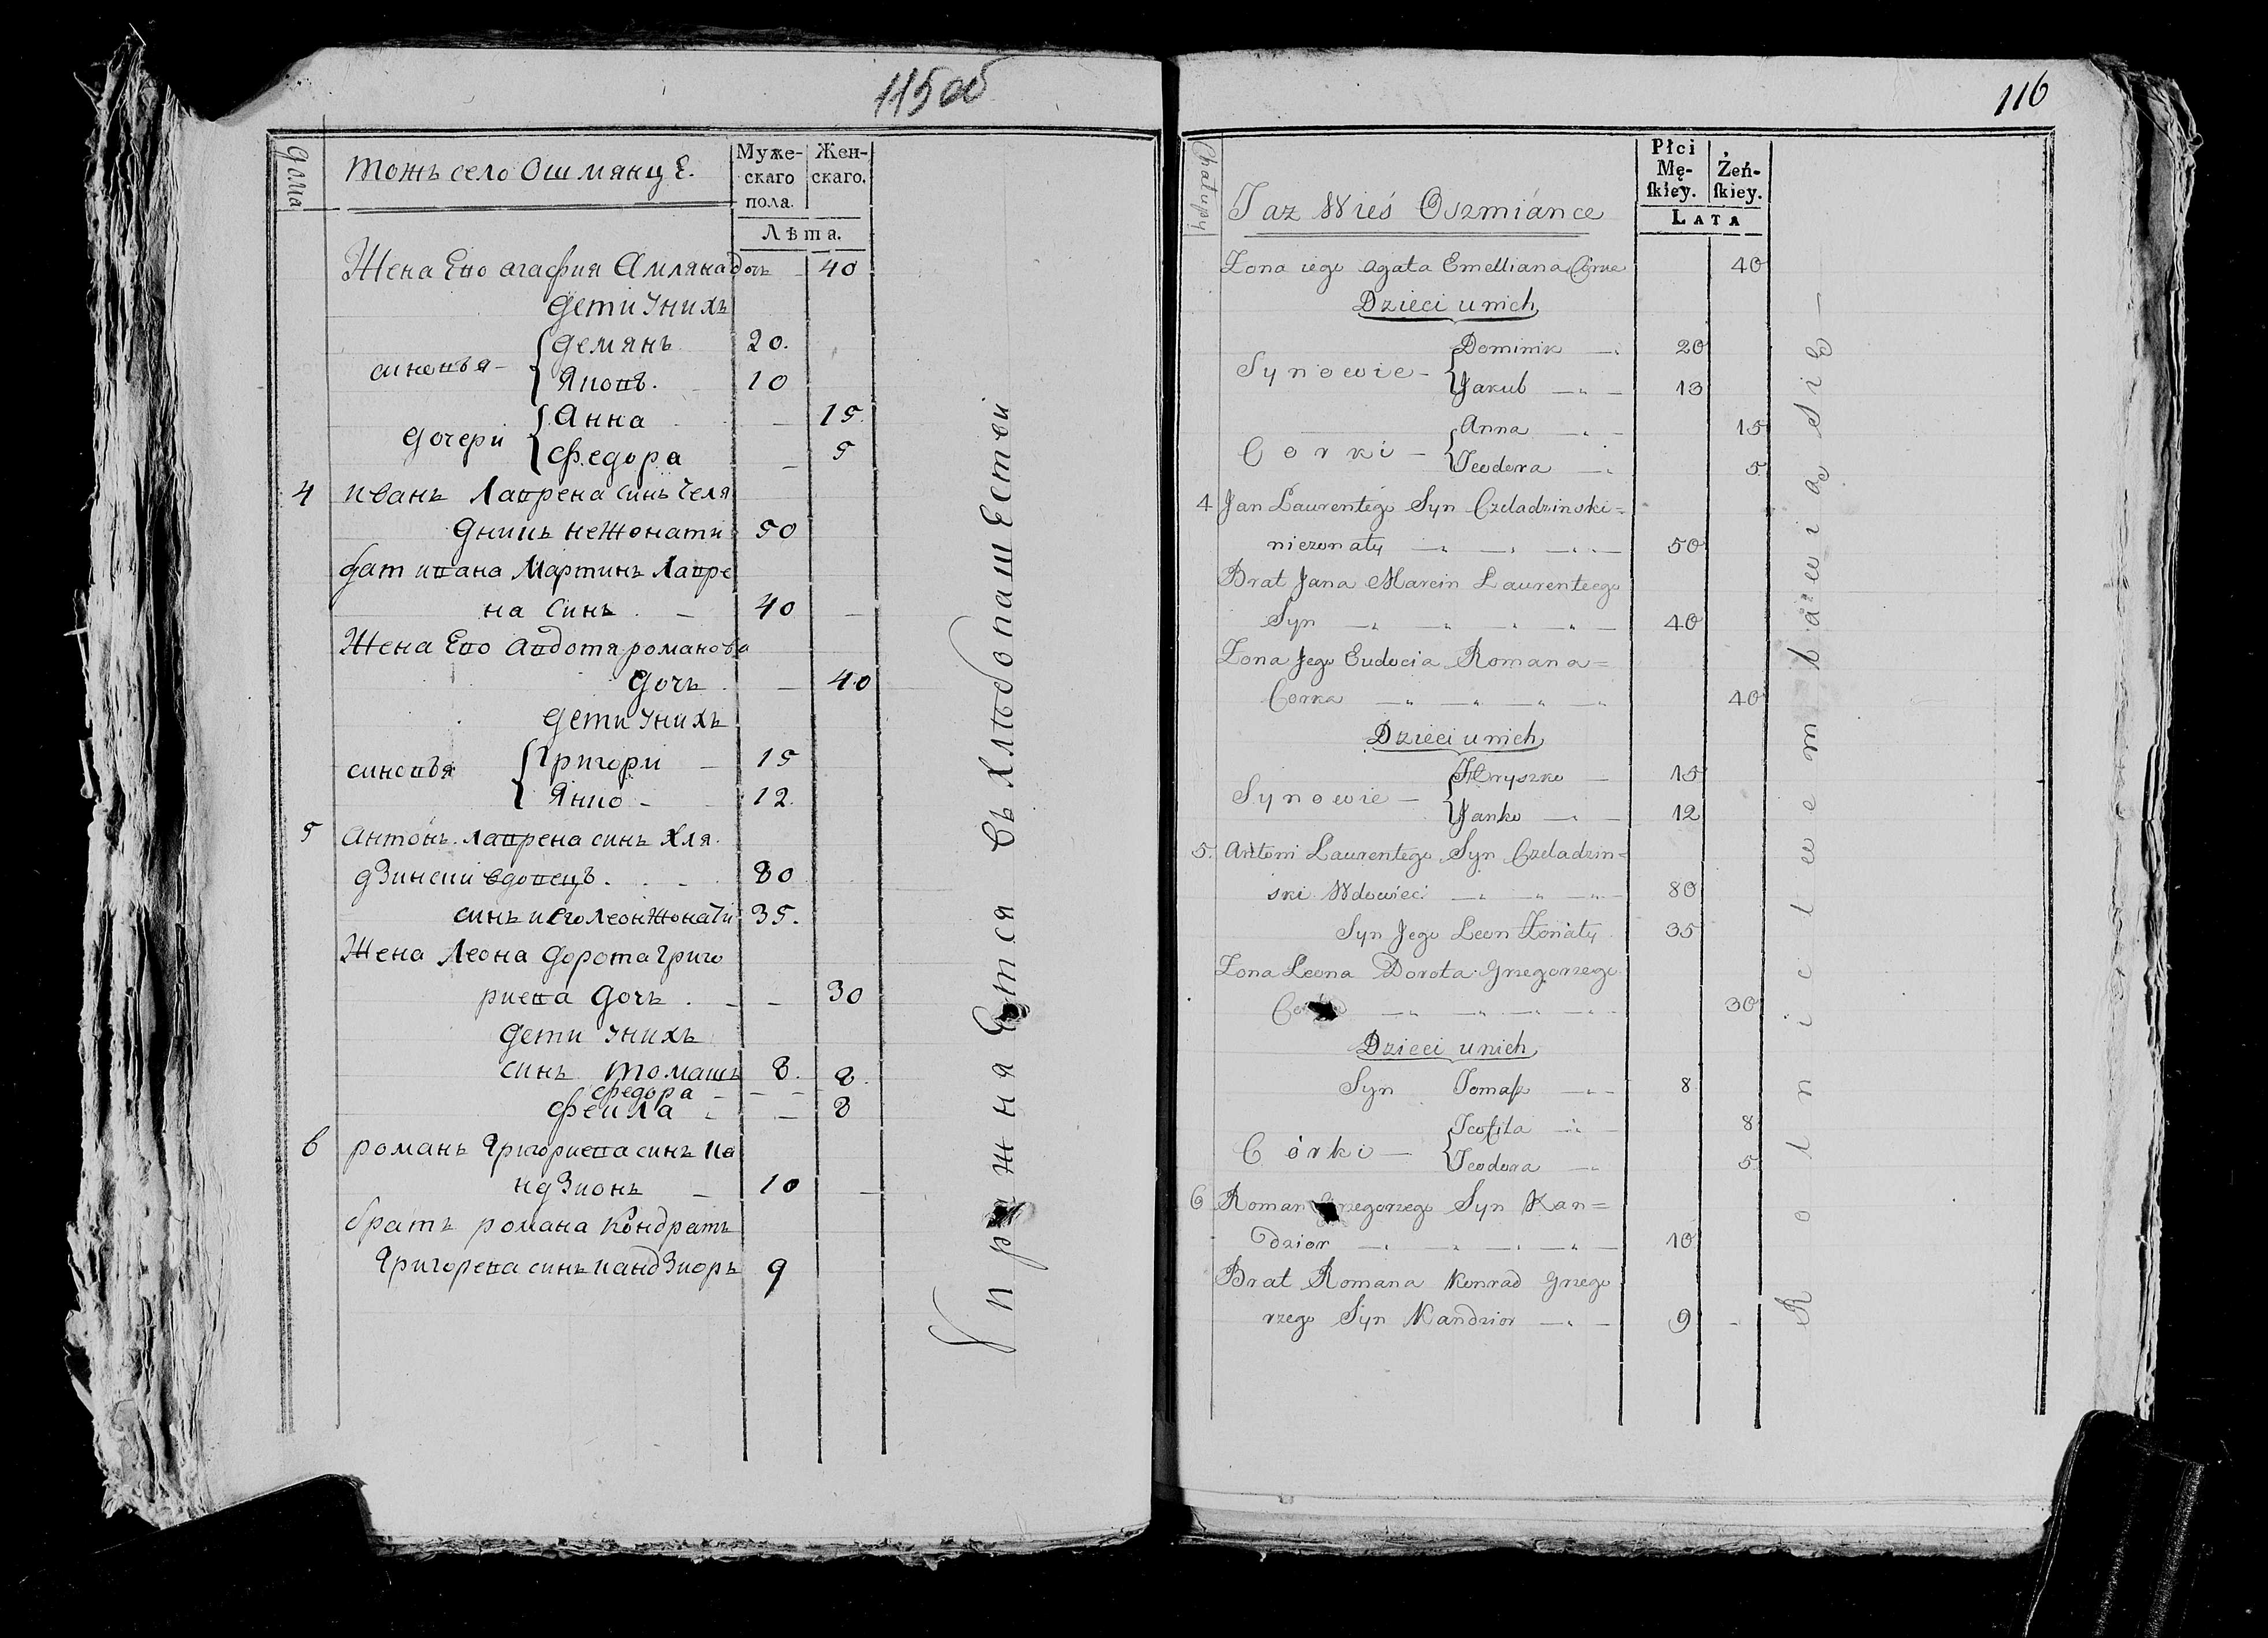 115 об
Дома
Тожъ село Ошмянце.
Муже-
скаго
пола.
Жен-
скаго.
Лѣта.
Жена Его агафия Амляна дочь - 40
Дети Унихъ
синовья - { Демянъ 20.
Яковъ. - 10
Дочери { Анна - 15.
Федора - 5
4 иванъ Лаврена синъ Челя
дникъ нежонати 50
брат ивана Мартинъ Лавре
на синъ. - 40 -
Жена Его авдотя романова
Дочь. - 40
Дети Унихъ
синовья { Григори - 15
Янко - 12.
5 Антонъ. Лаврена синъ Хля.
дзински вдовецъ. 80
синъ иего леон жонати 35.
Жена Леона Дорота Григо
риева Дочь. - - 30
Дети Унихъ
синъ Томашъ 8. 8.
федора - - -
фекла - - 8
6 романъ Григориева синъ Ка
ндзионъ - 10 -
братъ романа Кондратъ
Григорева синъ кандзиоръ 9
Упражняется въ хлѣбопашестви
116
Chałupy
Taz Wieś Oszmiánce
Płci
Mę-
skiey.
Żeń-
skiey.
LATA
Zona iego Agata Emelliana Córka 40
Dzieci u nich
Synowie - { Dominik 20
Jakub 13
Corki - { Anna 15
Teodora 5
4 Jan Laurentego Syn Czeladzinski=
niezonaty 50
Brat Jana Marcin Laurentego
Syn 40
Zona Jego Eudocia Romana=
Corka 40
Dzieci u nich
Synowie - { Hryszko 15
Janko 12
5. Antoni Laurentego Syn Czeladzin=
ski Wdowiec 80
Syn Jego Leon Zonaty 35
Zona Leona Dorota Grzegorzego
30
Dzieci u nich
Syn Tomasz 8
Córki - { Teofila 8
Teodora 5
6 Roman Grzegorzego Syn Kan=
dzior 10
Brat Romana Konrad Grzego
rzego Syn Kandzior 9 -
Rolnictwem bawią Się -